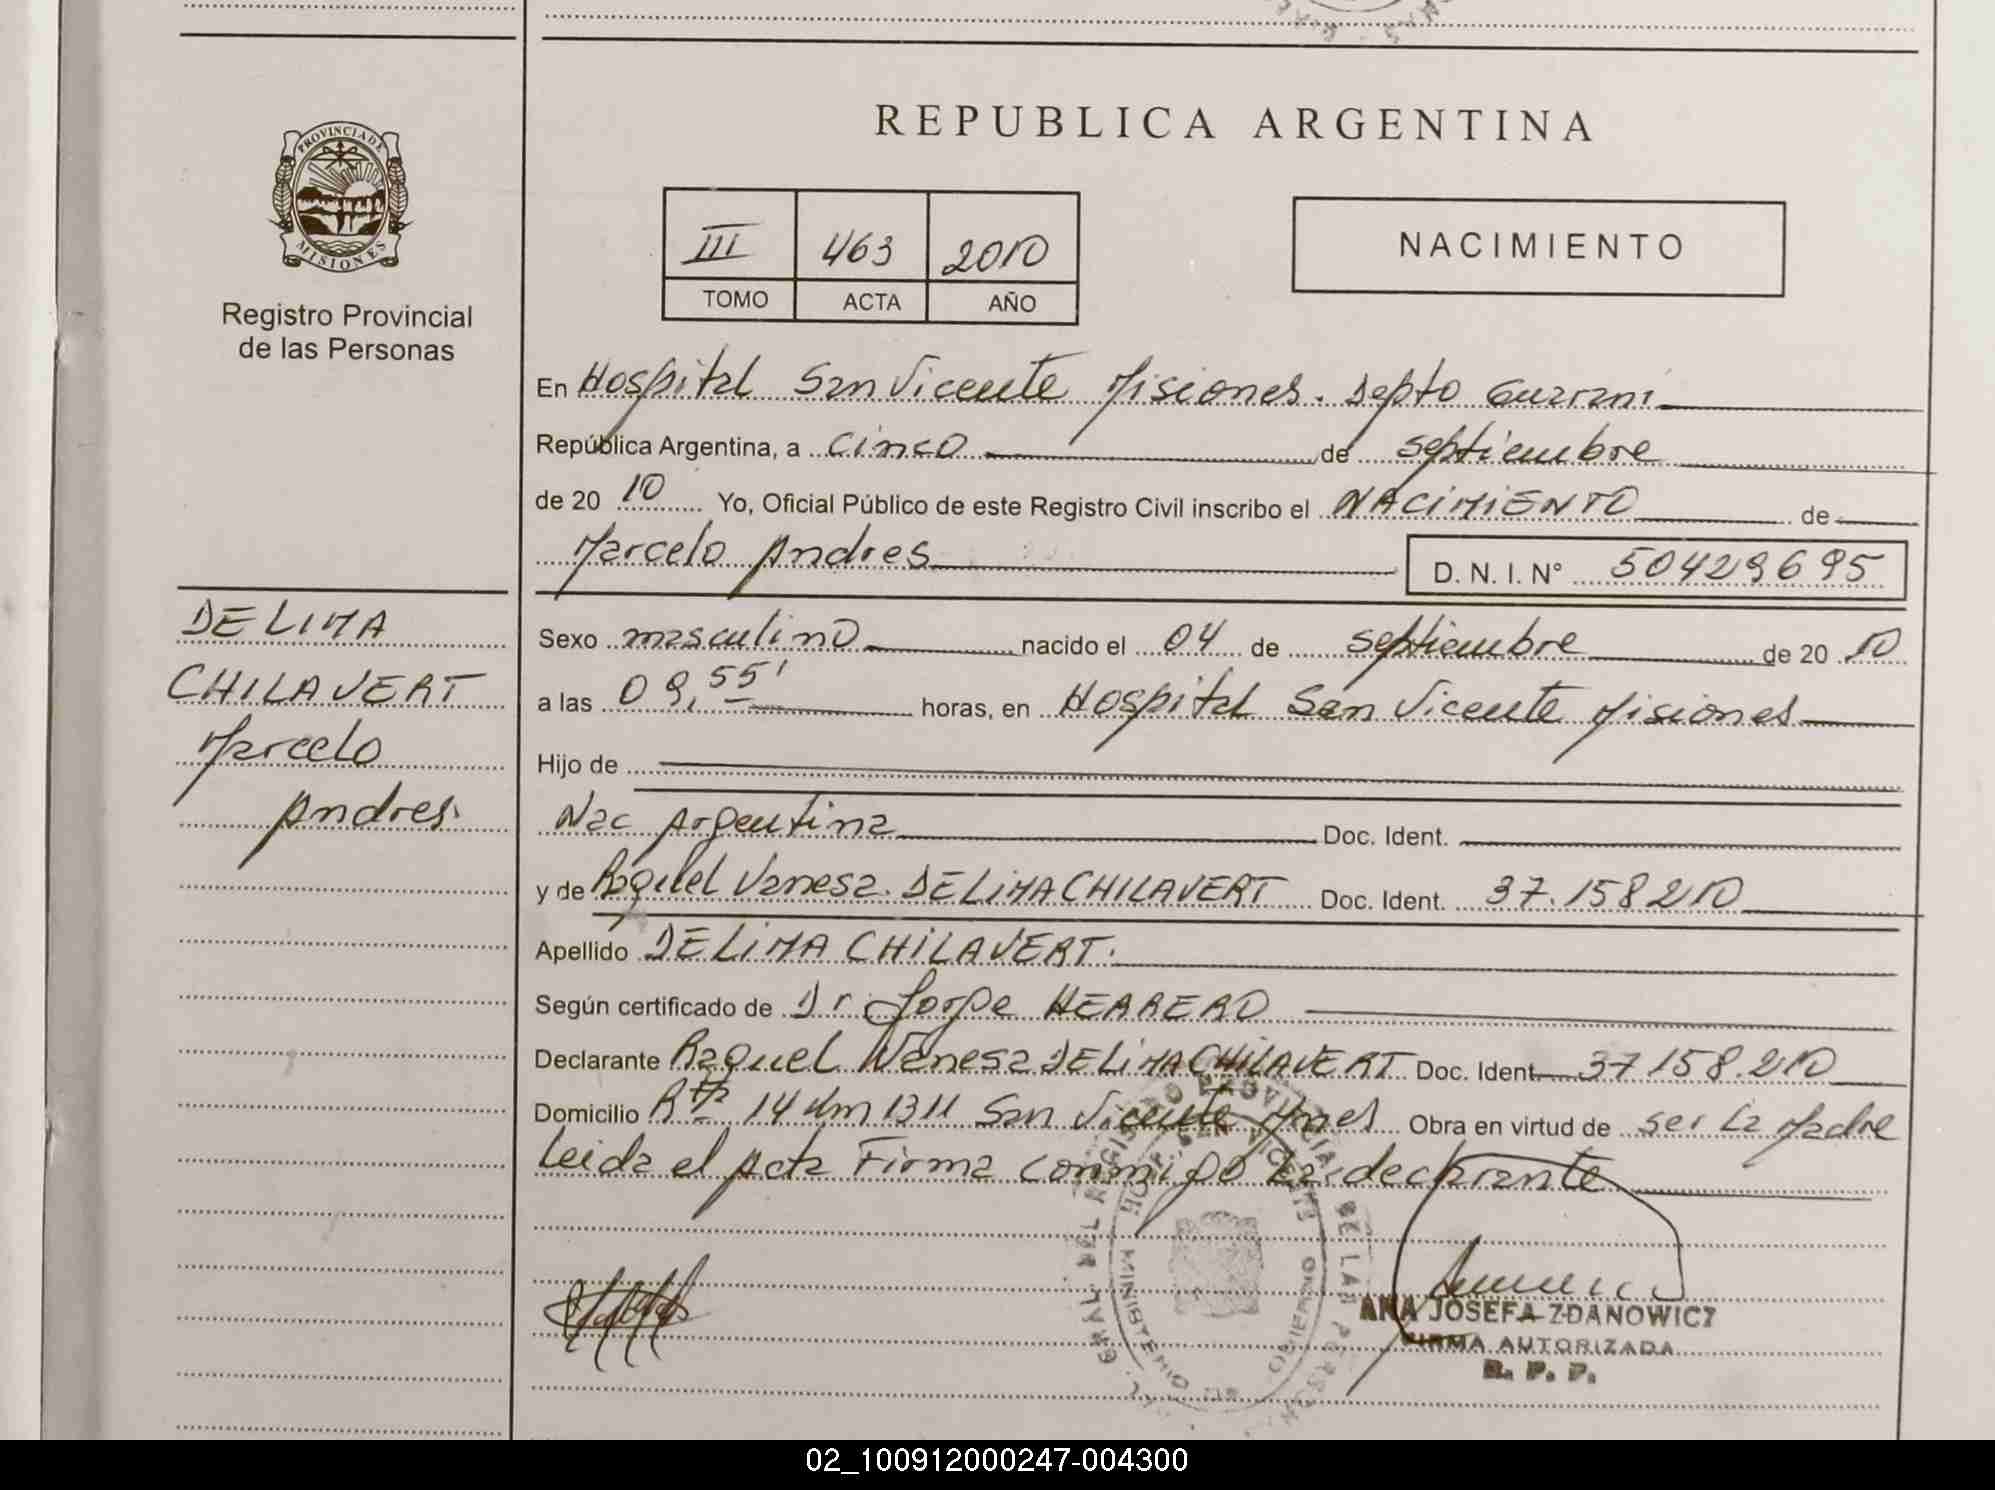 PROVINCIA DE
MISIONES
Registro Provincial
de las Personas
REPUBLICA ARGENTINA
III 463 2010
TOMO ACTA AÑO
NACIMIENTO
En Hospital San Vicente Misiones. Depto Guarani
República Argentina, a cinco de septiembre
de 20 10 Yo, Oficial Público de este Registro Civil inscribo el NACIMIENTO de
Marcelo Andres D. N. I. N° 50429695
DE LIMA
CHILAVERT
Marcelo
Andres.
Sexo masculino nacido el 04 de septiembre de 20 10
a las 09,55' horas, en Hospital San Vicente Misiones
Hijo de
Nac Argentina Doc. Ident.
y de Raquel Vanesa. DE LIMA CHILAVERT Doc. Ident. 37.158210
Apellido DE LIMA CHILAVERT.
Según certificado de Dr. Jorge HERRERO
Declarante Raquel Vanesa DE LIMA CHILAVERT Doc. Ident 37158.210
Domicilio Rta 14 Km 1311 San Vicente Mnes Obra en virtud de ser La Madre
Leida el Acta Firma conmigo La declarante
ANA JOSEFA ZDANOWICZ
FIRMA AUTORIZADA
R. P. P.
02_100912000247-004300